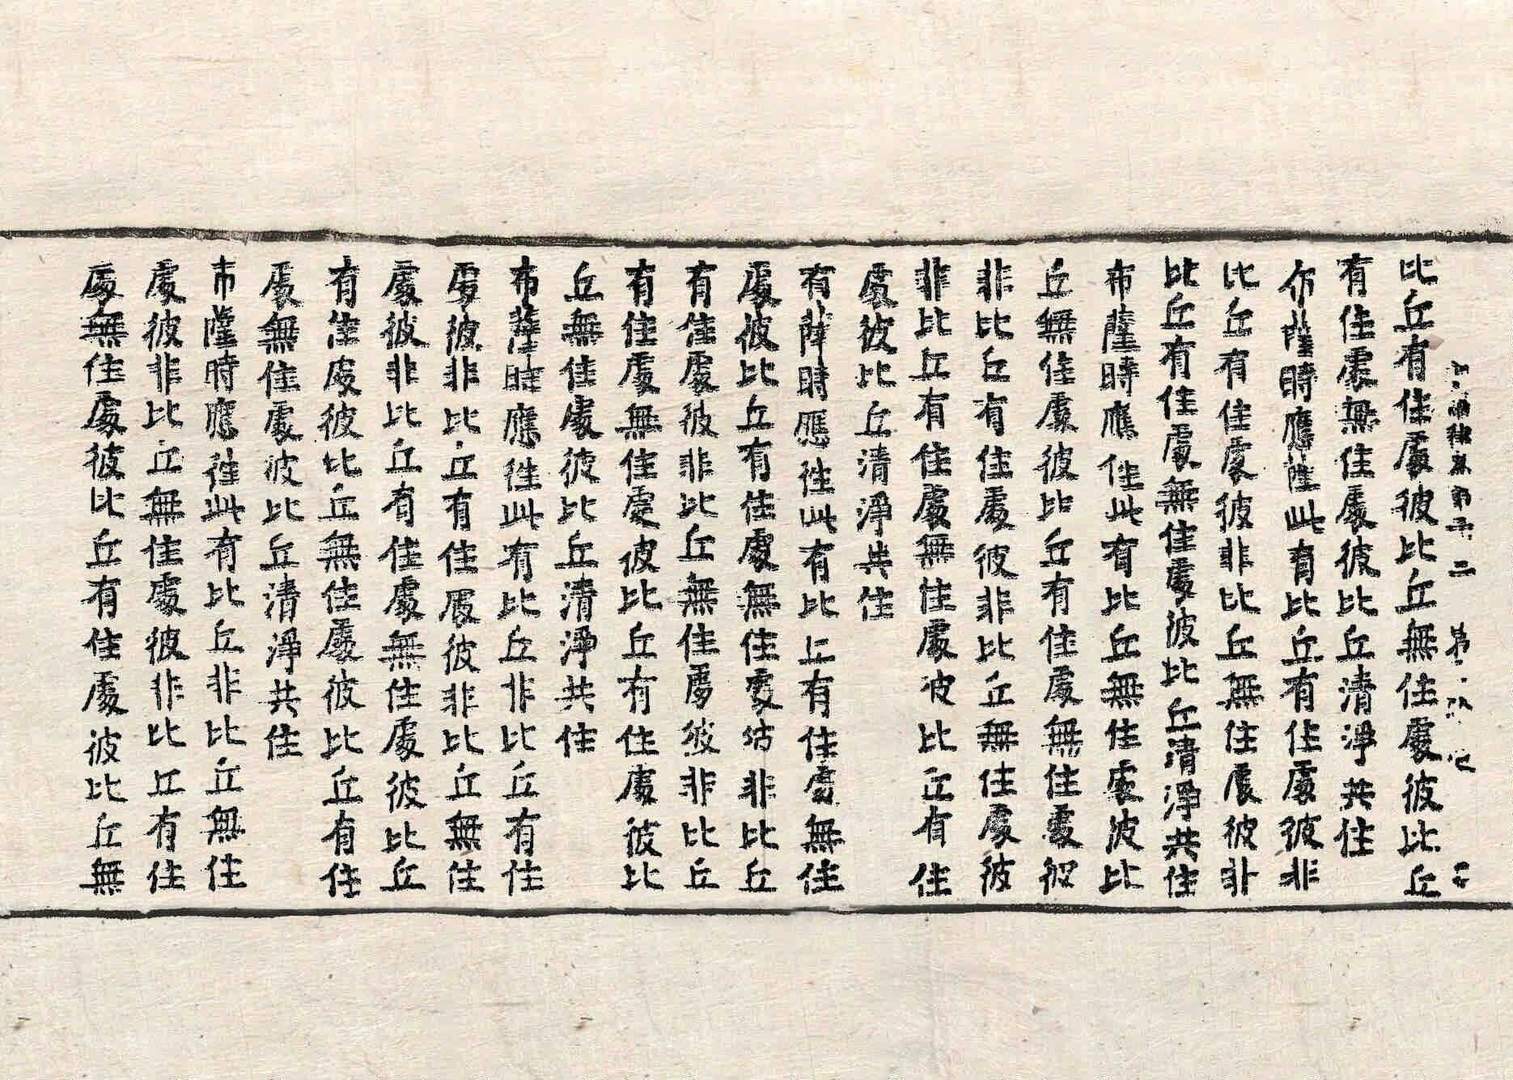 律 第 二 第
比丘有住處彼比丘無住處彼比丘
有住處無住處彼比丘清淨共住
布薩時應徃此有比丘有住處彼非
比丘有住處彼非比丘無住處彼非
比丘有住處無住處彼比丘清淨共住
布薩時應徃此有比丘無住處彼比
丘無住處彼比丘有住處無住處彼
非比丘有住處彼非比丘無住處彼
非比丘有住處無住處彼比丘有住
處彼比丘清淨共住
有薩時應徃此有比丘有住處無住
處彼比丘有住處無住處彼非比丘
有住處彼非比丘無住處彼非比丘
有住處無住處彼比丘有住處彼比
丘無住處彼比丘清淨共住
布薩時應徃此有比丘非比丘有住
處彼非比丘有住處彼非比丘無住
處彼非比丘有住處無住處彼比丘
有住處彼比丘無住處彼比丘有住
處無住處彼比丘清淨共住
布薩時應徃此有比丘非比丘無住
處彼非比丘無住處彼非比丘有住
處無住處彼比丘有住處彼比丘無